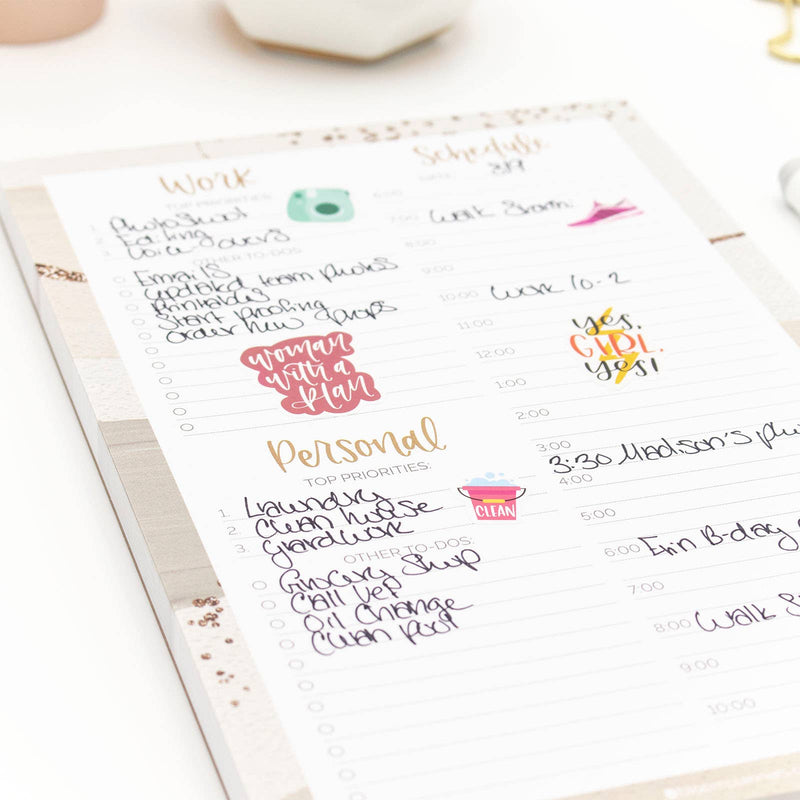 Work
TOP PRIORITIES:
1. Photo Shoot
2. Editing
3. Voice overs
OTHER TO-DOS:
Emails
updated team photos
Printables
Start Proofing
order new props
woman
with a
plan
Personal
TOP PRIORITIES:
1. Laundry
2. Clean house
3. yardwork
CLEAN
OTHER TO-DOS:
Grocery Shop
Call Vet
Oil Change
Clean pool
Schedule
DATE: 3/9
6:00
7:00 Walk Storm
8:00
9:00
10:00 Work 10-2
11:00
yes,
GIRL,
yes!
12:00
1:00
2:00
3:00
3:30 Madison's
4:00
5:00
6:00 Erin B-day
7:00
8:00 Walk
9:00
10:00